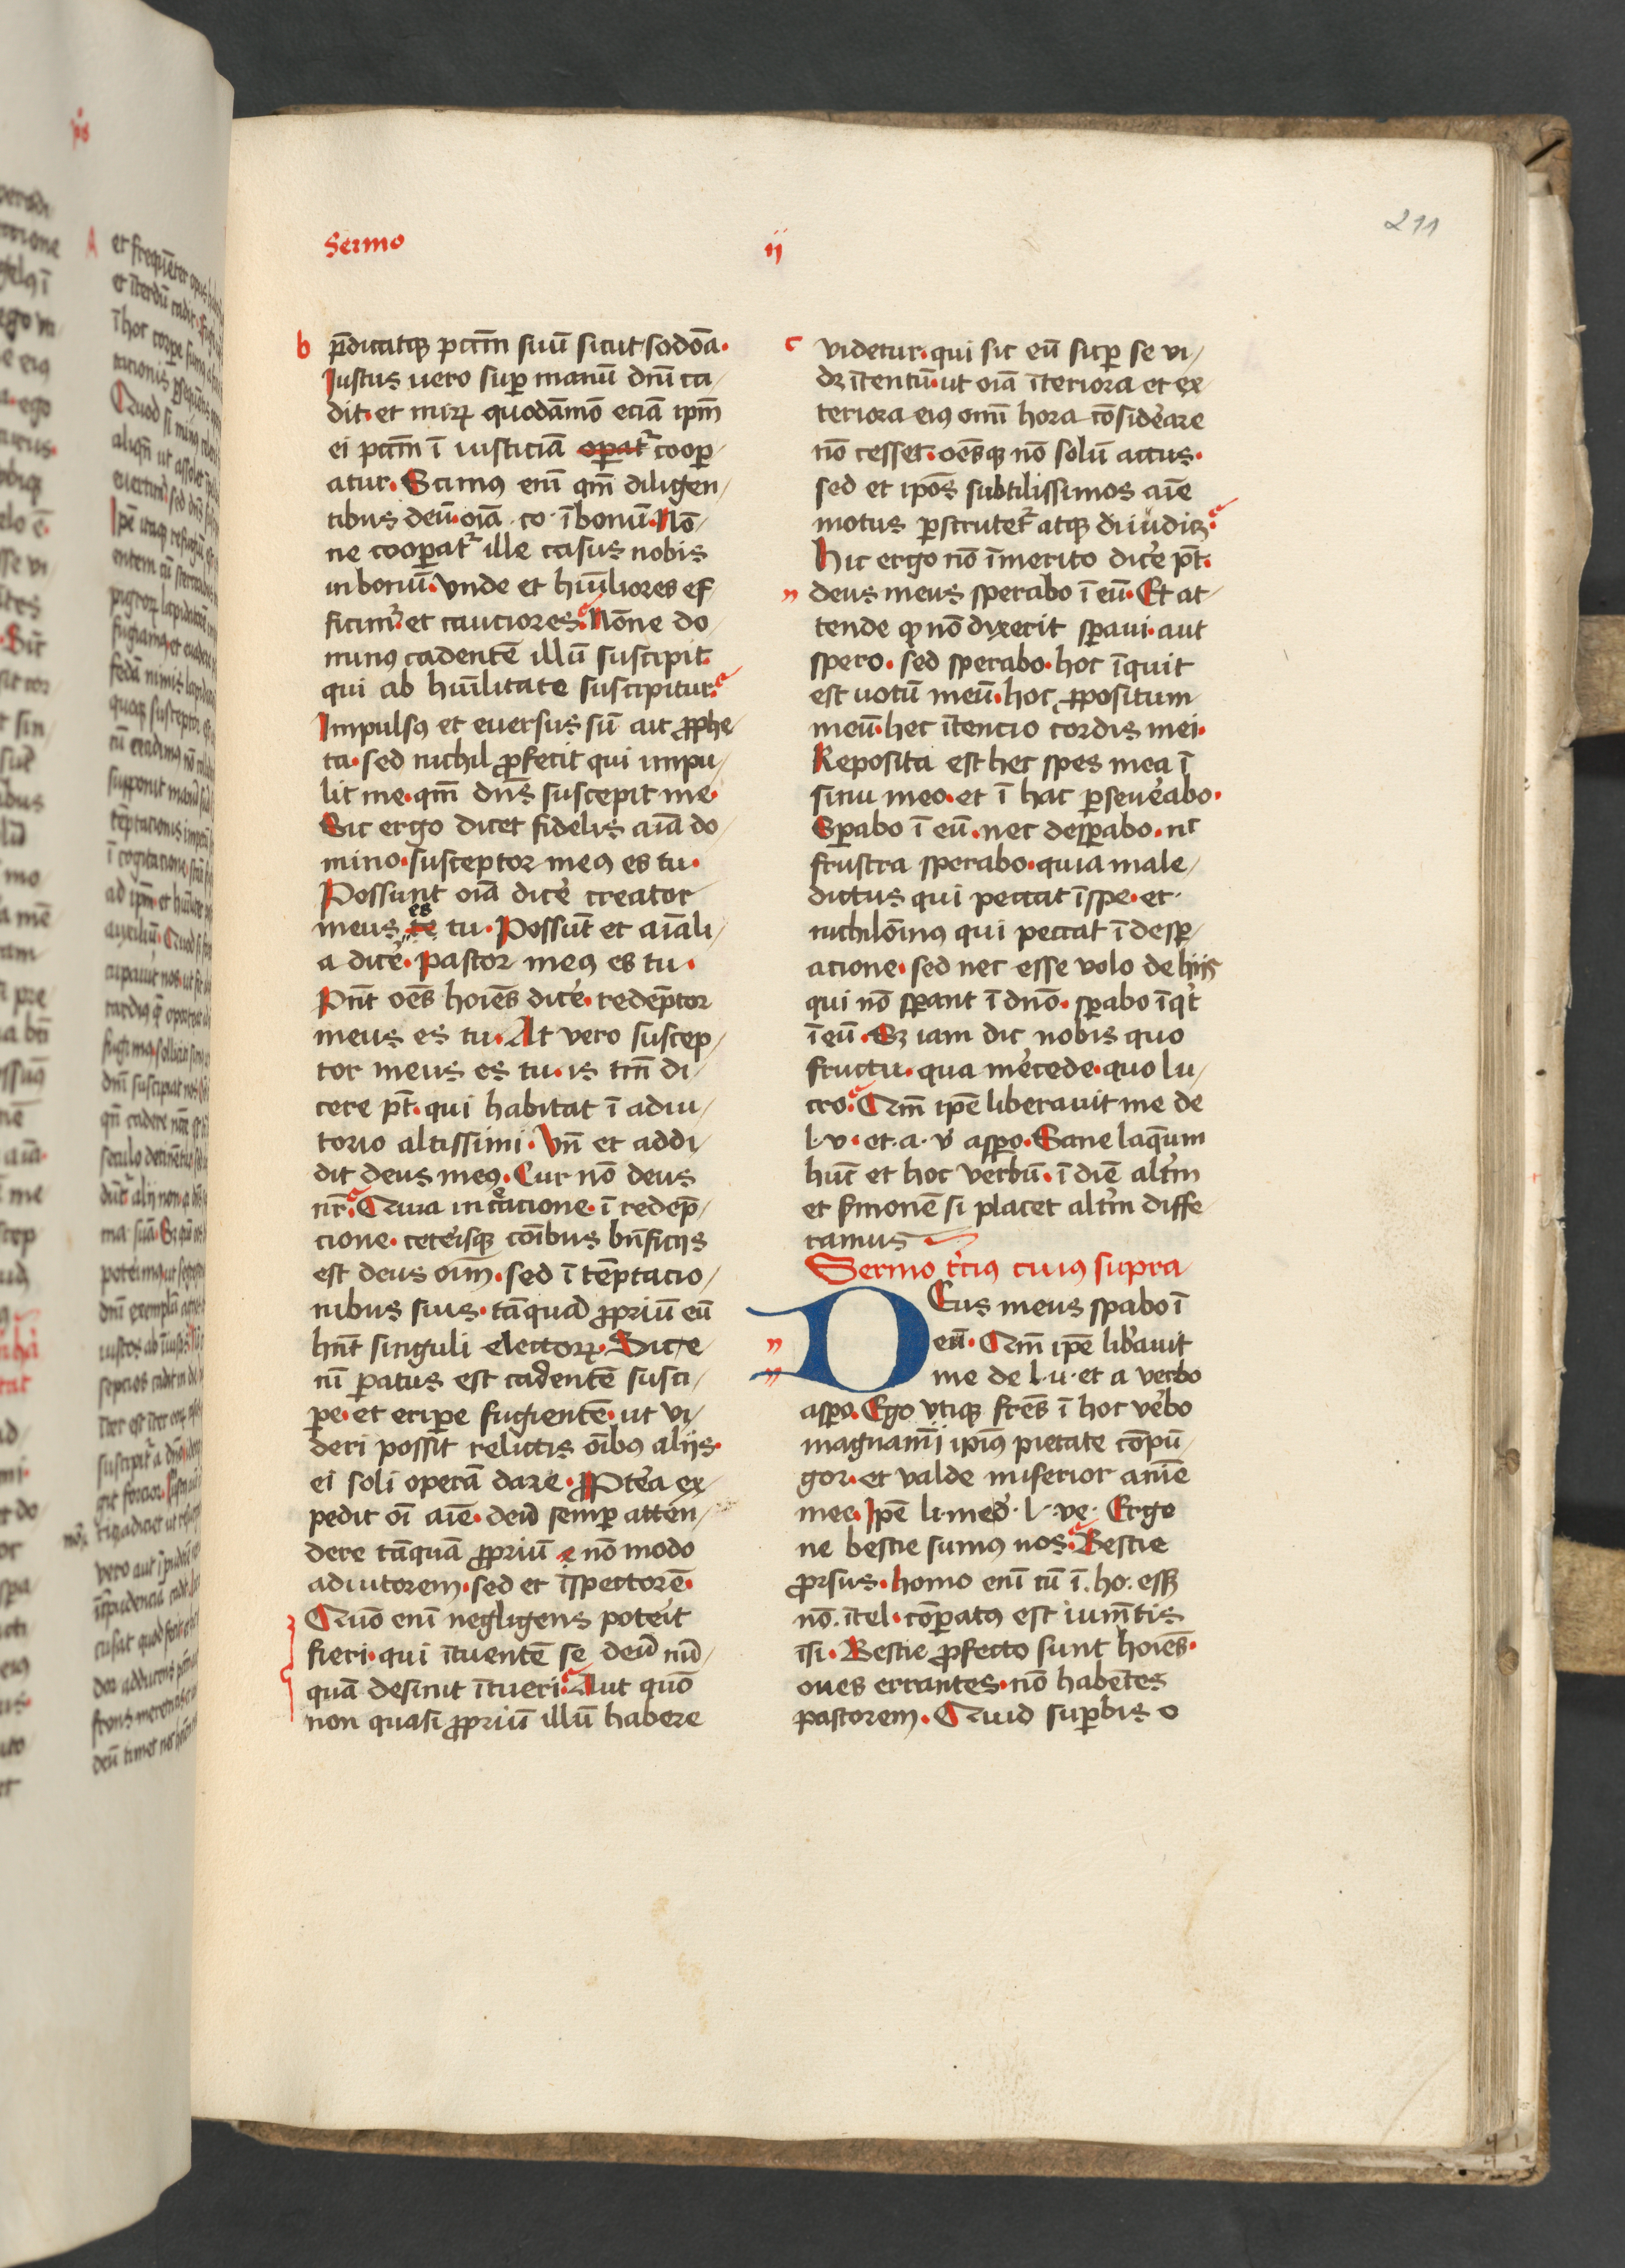 211
Sermo ij
b p̄dicatqꝫ pctm̄ suū sicut sodōa.
Iustus uero suꝑ manū dn̄i ca/
dit. et miꝝ quodāmō eciā ip̄m
ei pctm̄ ī iusticiā oꝑat᷑ cooꝑ/
atur. Scimꝰ enī qm̄ diligen/
tibus deū. oīa .co. ī bonū. Nō/
ne cooꝑat᷑ ille casus nobis
in bonū. vnde et hūiliores ef/
ficimᷣ. et cauciores. Nōne do/
minꝰ cadentē illū suscipit.
qui ab hūilitate suscipitur.
Impulsꝰ et euersus sū ait ꝓphe/
ta. sed nichil ꝓfecit qui impu/
lit me. qm̄ dn̄s suscepit me.
Sic ergo dicet fidelis aīa do/
mino. susceptor meꝰ es tu.
Possunt oīa dice᷑ creator
es
meus te tu. Possūt et aīali/
a dice᷑. pastor meꝰ es tu.
Pn̄t oēs hoīes dice᷑. redēptor
meus es tu. At vero suscep/
tor meus es tu. is tm̄ di/
cere pt̄. qui habitat ī adiu/
torio altissimi. Vn̄ et addi/
dit deus meꝰ. Cur nō deus
nr̄. Quia in cͤacione. ī redēp/
cione. cete᷑isqꝫ cōibus bn̄ficijs
est deus oīm. sed ī tēptacio/
nibus suis. tāquā ꝓpriū eū
hn̄t singuli electoꝝ. Sic te
nī ꝑatus est cadentē susci/
ꝑe. et eriꝑe fugientē. ut vi/
deri possit relictis oībꝰ alijs.
ei soli operā dare. ꝓptea᷑ ex/
pedit oī aīe. deū semꝑ atten/
dere tāquā ꝓpriū ⁊ nō modo
adiutorem. sed et īspectorē.
Quō enī negligens poteit᷑
fieri. qui ītuentē se deū nū/
quā desinit ītueri. Aut quō
non quasi ꝓpriū illū habere
c videtur. qui sic eū suꝑ se vi/
dꝫ ītentū. ut oīa īteriora et ex/
teriora eiꝰ omī hora cōside᷑are
nō cesset. oēsqꝫ nō solū actus.
sed et ipōs subtilissimos aīe
motus ꝑscrutet᷑ atqꝫ diiudicꝫ.
Hic ergo nō īmerito dice᷑ pt̄.
deus meus sperabo ī eū. Et at/
tende qꝫ nō dixerit sꝑaui. aut
spero. sed sperabo. hoc īquit
est uotū meū. hoc ꝓpositum
meū. hec ītencio cordis mei.
Reposita est hec spes mea ī
sinu meo. et ī hac ꝑseue᷑abo.
Sꝑabo ī eū. nec desꝑabo. nͨ
frustra sperabo. quia male/
dictus qui peccat ī spe. et
nichilōinꝰ qui peccat ī desꝑ/
acione. sed nec esse volo de hijs
qui nō sꝑant ī dnō. sꝑabo īqͥt
ī eū. Sꝫ iam dic nobis quo
fructu. qua me᷑cede. quo lu/
cro. Qm̄ ipē liberauit me de
l. v. et. a. v᷑ asꝑo. Sane laq̄um
hūc et hoc verbū. ī diē altm᷑
et ſmonē si placet altm᷑ diffe
ramus
Sermo tc᷑iꝰ cuiꝰ supra
DEus meus sꝑabo ī
eū. Qm̄ ipē lib᷑auit
me de l. u. et a verbo
asꝑo. Ego vtiqꝫ fr̄es ī hoc ve᷑bo
magnamī ipiꝰ pietate cōpū/
gor. et valde miserior anīe
mee. Ipē li. me d᷑. l. ve. Ergo
ne bestie sumꝰ nos. Bestie
ꝓrsus. homo enī cū ī. ho. eēt
nō. ītel. cōꝑatꝰ est iumētis
īsi. Bestie ꝓfecto sunt hoīes.
oues errantes. nō habētes
pastorem. Quid suꝑbis o